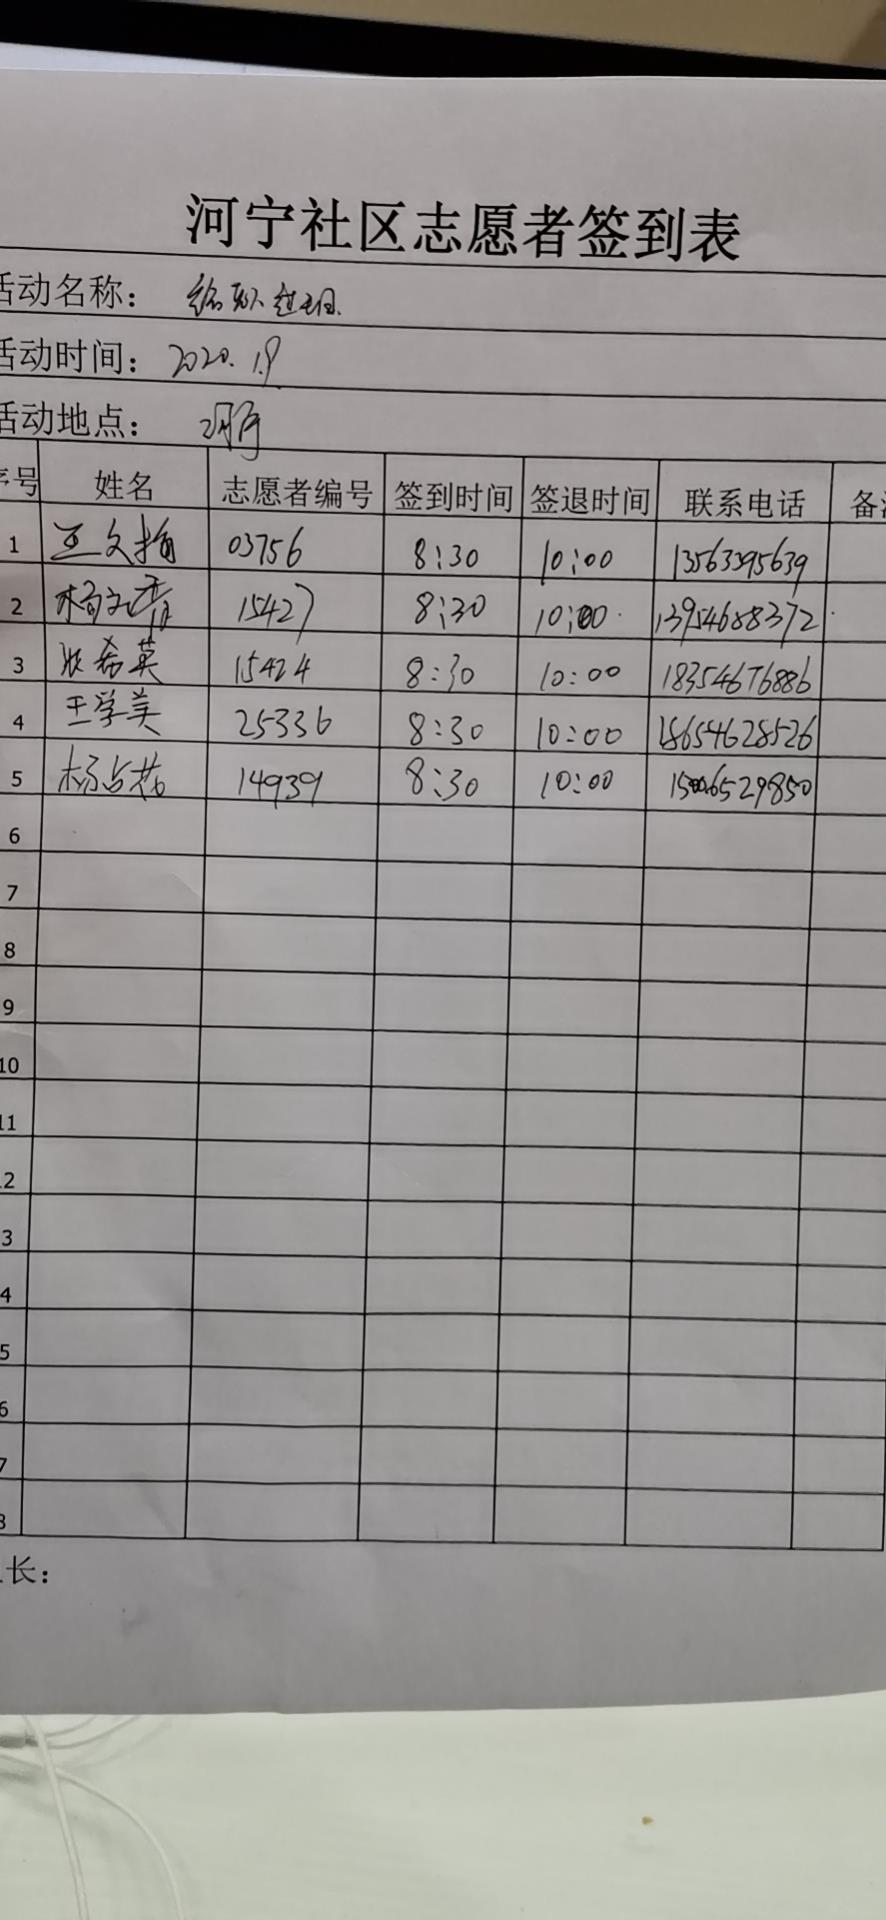 河宁社区志愿者签到表
活动名称:
活动时间: 2020.1.9
活动地点:
序号 姓名 志愿者编号 签到时间 签退时间 联系电话 备注
1 03756 8:30 10:00 13563395639
2 15427 8:30 10:00 13954688372
3 张希英 15424 8:30 10:00 18354676886
4 王学美 25336 8:30 10:00 18654628526
5 14939 8:30 10:00 15006529850
6
7
8
9
10
11
12
13
14
15
16
17
18
长: